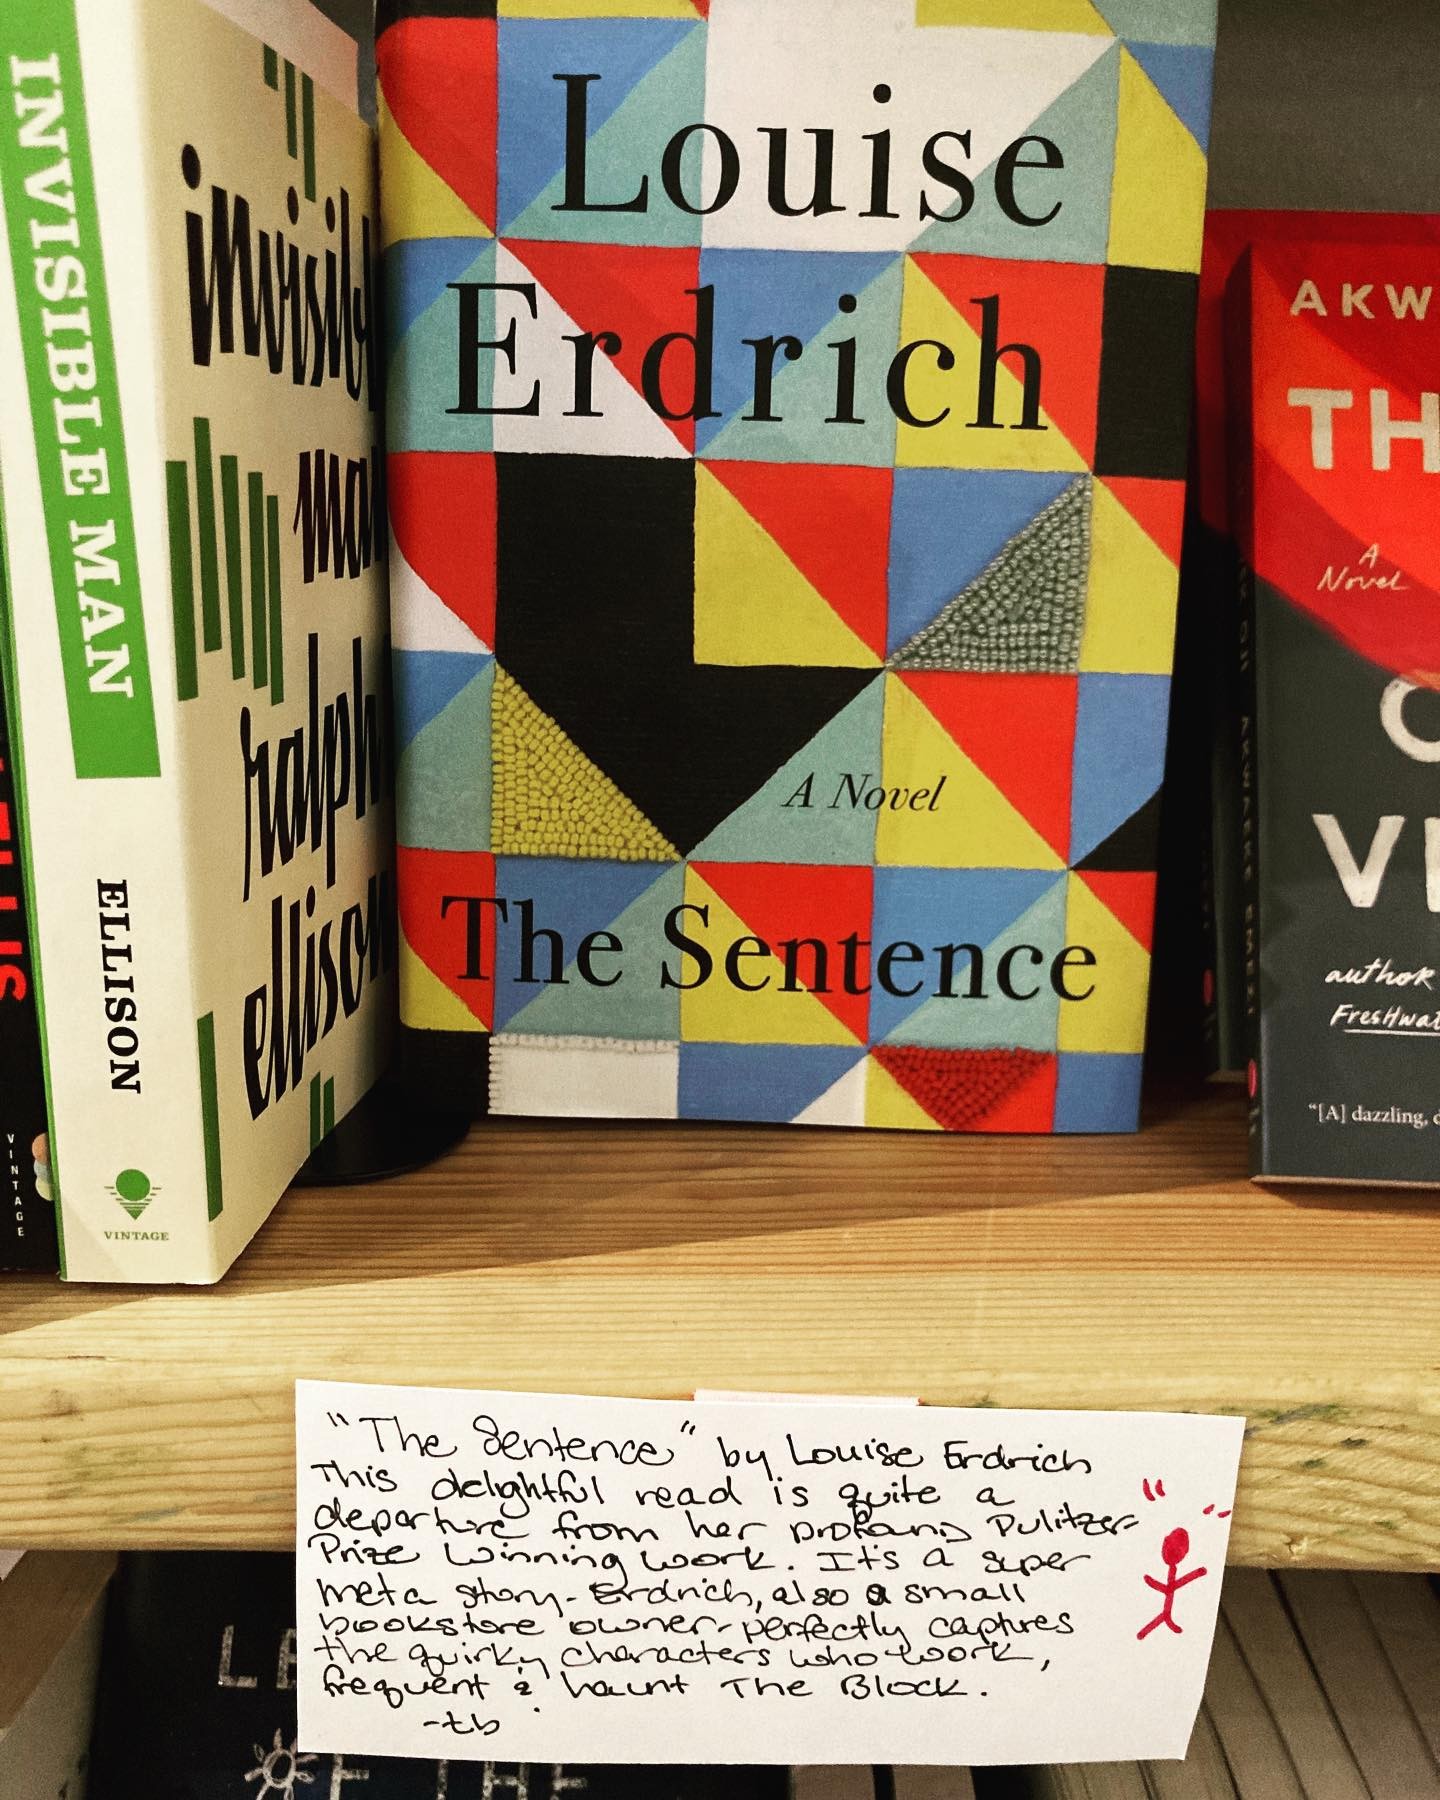 INVISIBLE MAN
ELLISON
VINTAGE
invisib
man
ralph
ellison
Louise
Erdrich
A Novel
The Sentence
AKW
TH
A
Novel
O
VI
author
FresHwat
"[A] dazzling, d
AKWAEKE EMEZI
VINTAGE
"The Sentence" by Louise Erdrich
This delightful read is quite a
departure from her profound Pulitzer-
Prize winning work. It's a super
meta story - Erdrich, also a small
bookstore owner - perfectly captures
the quirky characters who work,
frequent & haunt The Block.
-tb
LE
OF THE